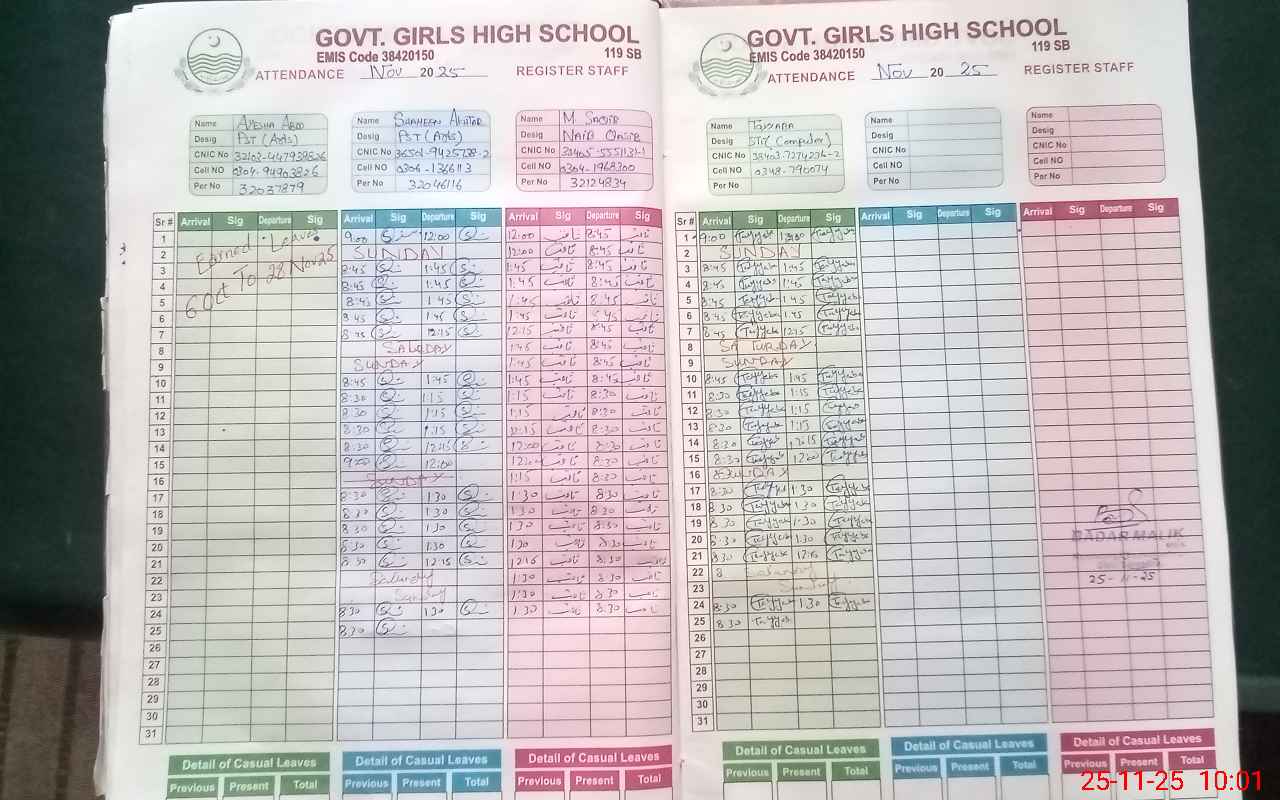 GOVT. GIRLS HIGH SCHOOL
EMIS Code 38420150
119 SB
ATTENDANCE Nov 2025 REGISTER STAFF
Name Ayesha Abid
Desig PST (Arts)
CNIC No
Cell NO 0304-94903826
Per No 32037879
Name Shaheen Akhtar
Desig PST (Arts)
CNIC No
Cell NO 0306-1366113
Per No 32046116
Name M. Saqib
Desig Naib Qasid
CNIC No
Cell NO 0304-1968300
Per No 32124834
Sr # Arrival Sig Departure Sig Arrival Sig Departure Sig Arrival Sig Departure Sig
1 Earned Leave 9:00 12:00 12:00 ثاقب 8:45 ثاقب
2 SUNDAY 12:00 ثاقب 8:45 ثاقب
3 6 Oct To 28 Nov 25 8:45 1:45 1:45 ثاقب 8:45 ثاقب
4 8:45 1:45 1:45 ثاقب 8:45 ثاقب
5 8:45 1:45 1:45 ثاقب 8:45 ثاقب
6 8:45 1:45 1:45 ثاقب 8:45 ثاقب
7 8:45 12:15 12:15 ثاقب 8:45 ثاقب
8 1:45 ثاقب 8:45 ثاقب
9 SUNDAY 1:45 ثاقب 8:45 ثاقب
10 8:45 1:45 1:45 ثاقب 8:45 ثاقب
11 8:30 1:15 1:15 ثاقب 8:30 ثاقب
12 8:30 1:15 1:15 ثاقب 8:30 ثاقب
13 8:30 1:15 ثاقب 8:30 ثاقب
14 8:30 12:15 12:00 ثاقب 8:30 ثاقب
15 9:00 12:00 ثاقب 8:30 ثاقب
16 SUNDAY 1:15 ثاقب 8:30 ثاقب
17 8:30 1:30 1:30 ثاقب 8:30 ثاقب
18 8:30 1:30 1:30 ثاقب 8:30 ثاقب
19 8:30 1:30 1:30 ثاقب 8:30 ثاقب
20 8:30 1:30 1:30 ثاقب 8:30 ثاقب
21 8:30 12:15 12:15 ثاقب 8:30 ثاقب
22 Saturday 1:30 ثاقب 8:30 ثاقب
23 Sunday 1:30 ثاقب 8:30 ثاقب
24 8:30 1:30 1:30 ثاقب 8:30 ثاقب
25 8:30
26
27
28
29
30
31
Detail of Casual Leaves Detail of Casual Leaves Detail of Casual Leaves
Previous Present Total Previous Present Total Previous Present Total
GOVT. GIRLS HIGH SCHOOL
EMIS Code 38420150
119 SB
ATTENDANCE Nov 2025 REGISTER STAFF
Name Tayyaba
Desig STI (Computer)
CNIC No 38403-7274276-2
Cell NO 0348-790074
Per No
Name
Desig
CNIC No
Cell NO
Per No
Name
Desig
CNIC No
Cell NO
Per No
Sr # Arrival Sig Departure Sig Arrival Sig Departure Sig Arrival Sig Departure Sig
1 9:00 Tayyaba Tayyaba
2 SUNDAY
3 8:45 Tayyaba 1:45 Tayyaba
4 8:45 Tayyaba 1:45 Tayyaba
5 8:45 Tayyaba 1:45 Tayyaba
6 8:45 Tayyaba 1:45 Tayyaba
7 8:45 Tayyaba 12:15 Tayyaba
8 SATURDAY
9 SUNDAY
10 8:45 Tayyaba 1:45 Tayyaba
11 8:30 Tayyaba 1:15 Tayyaba
12 8:30 Tayyaba 1:15 Tayyaba
13 8:30 Tayyaba 1:15 Tayyaba
14 8:30 Tayyaba 12:15 Tayyaba
15 8:30 Tayyaba 12:00 Tayyaba
16 SUNDAY
17 8:30 Tayyaba 1:30 Tayyaba
18 8:30 Tayyaba 1:30 Tayyaba
19 8:30 Tayyaba 1:30 Tayyaba
20 8:30 Tayyaba 1:30 Tayyaba
21 8:30 Tayyaba 12:15 Tayyaba
22 8 Saturday
23 Sunday
24 8:30 Tayyaba 1:30 Tayyaba
25 8:30 Tayyaba
27
28
29
30
31
BADAR MALIK
25-11-25
Detail of Casual Leaves Detail of Casual Leaves Detail of Casual Leaves
Previous Present Total Previous Present Total Previous Present Total
25-11-25 10:01